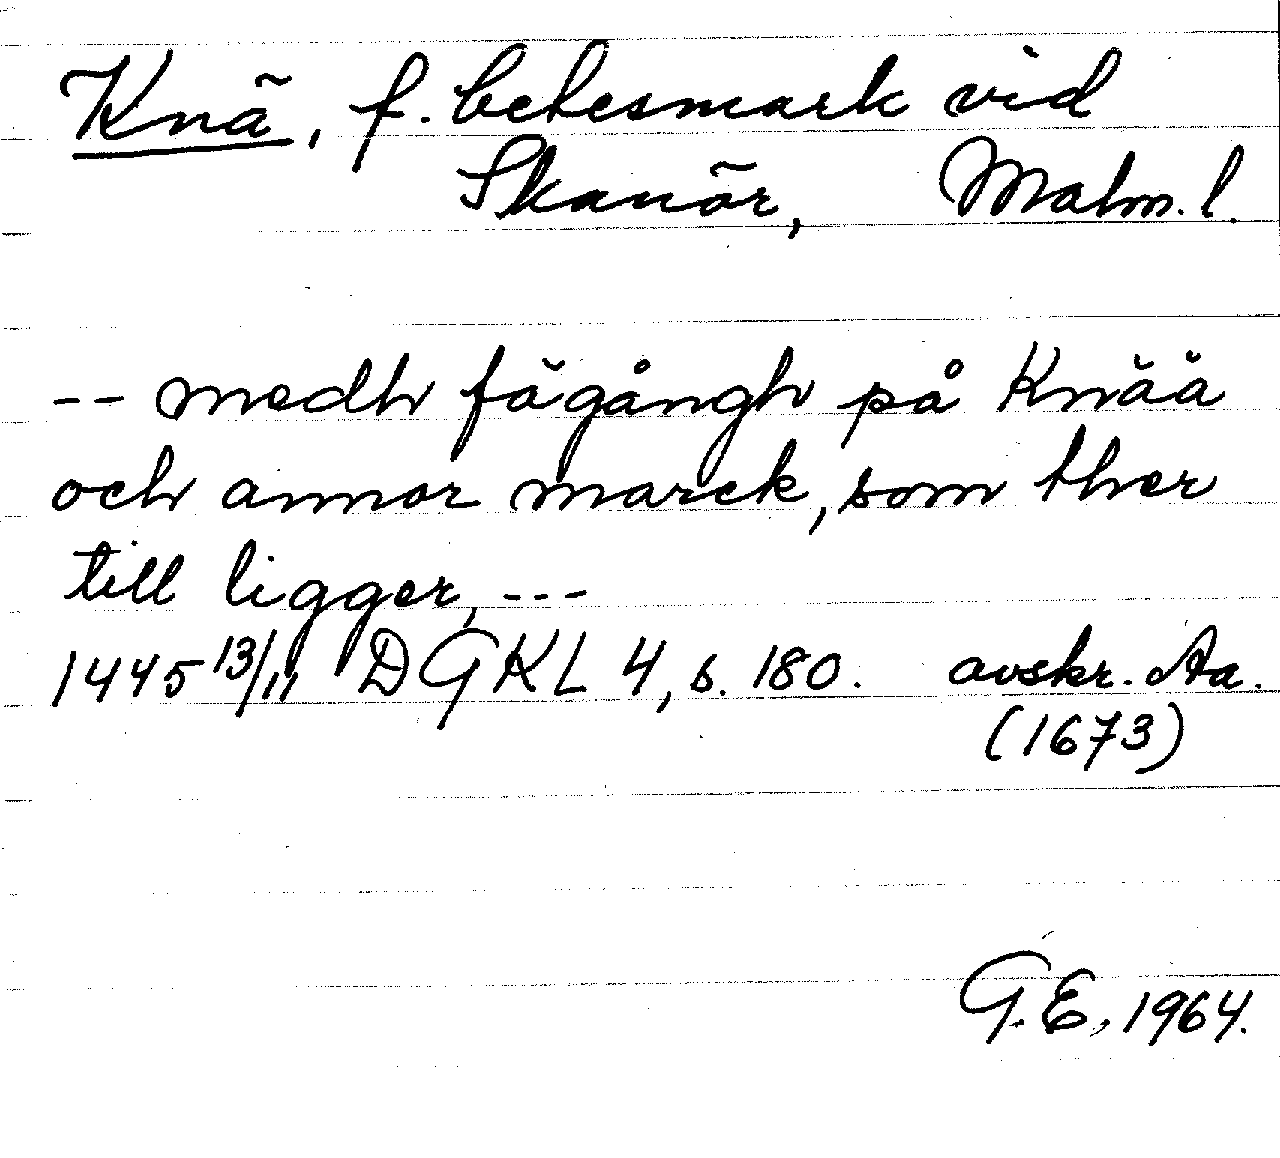 Knä, f. betesmark vid
Skanör, Malm. l.
-- medh fägångh på Knää
och annor marck, som ther
till ligger, ---
1445 13/11 DGKL 4, s. 180. avskr. Aa.
(1673)
G.E., 1964.